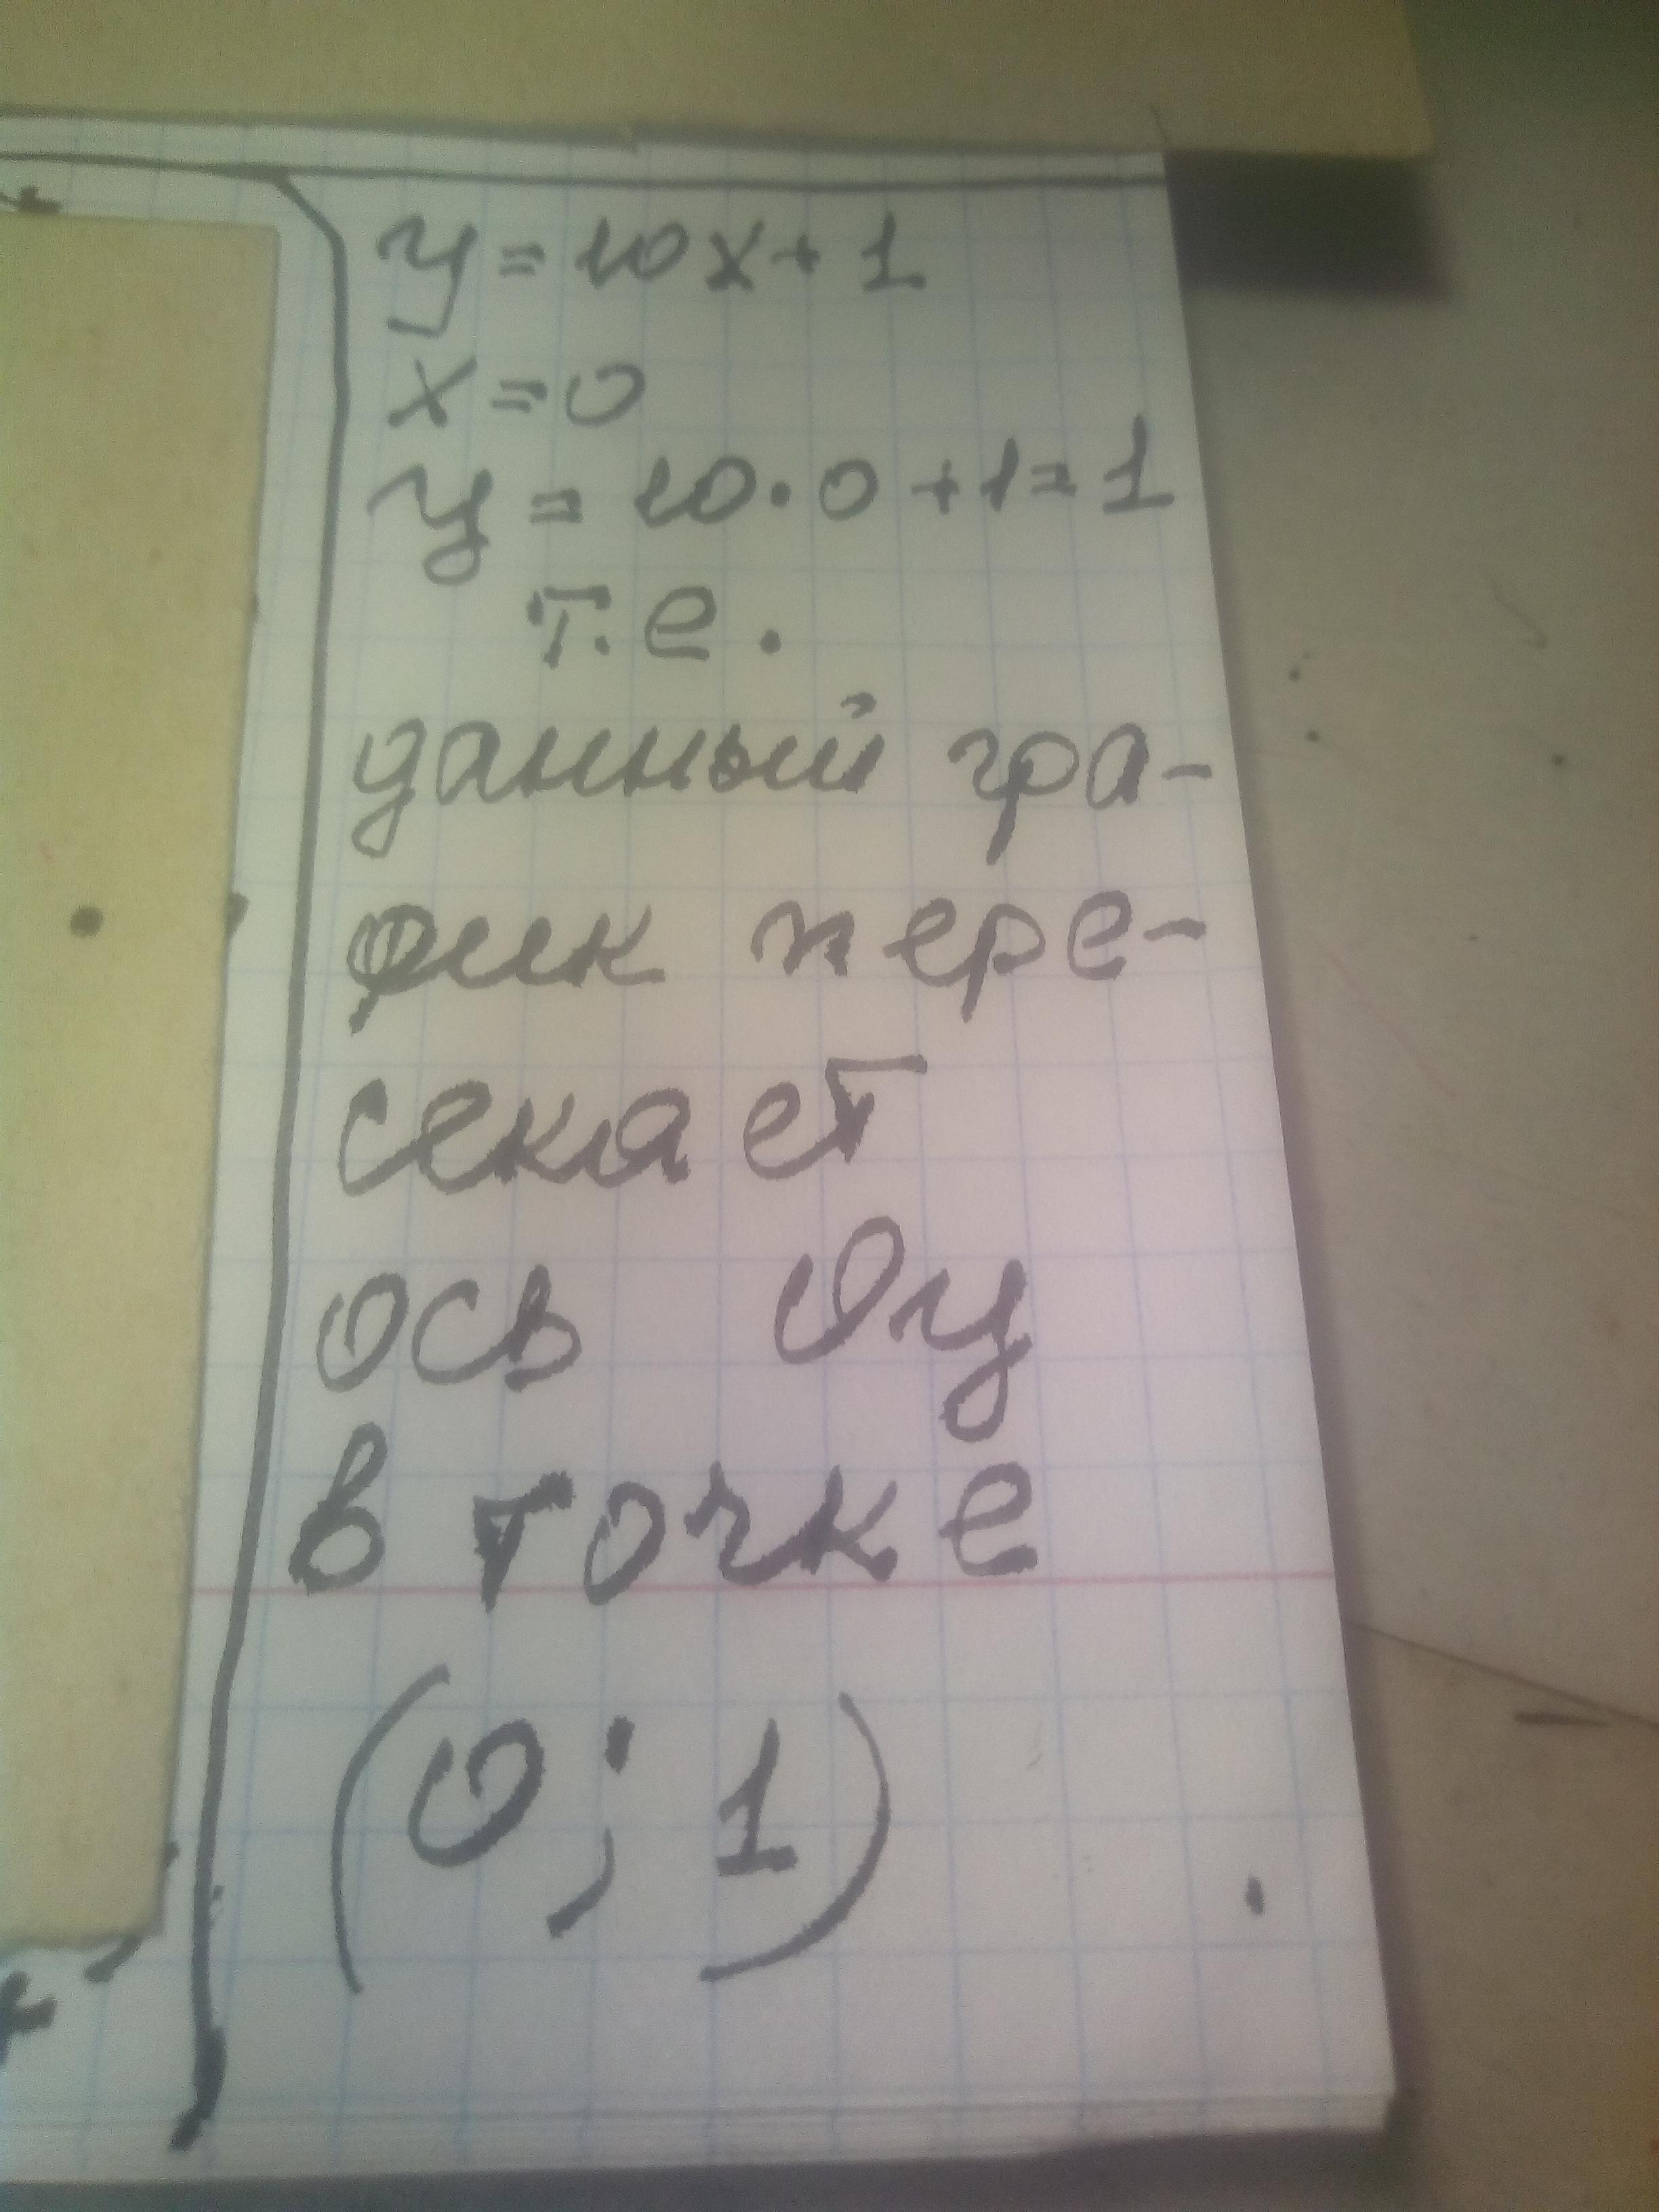 y = 10x + 1
x = 0
y = 10 · 0 + 1 = 1
т.е.
данный гра-
фик пере-
секает
ось Оy
в точке
(0; 1)